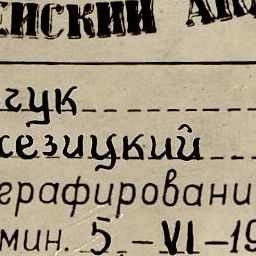 ЕЙСКИЙ АК
гук
жезицкий
графировани
мин. 5.-VI-19